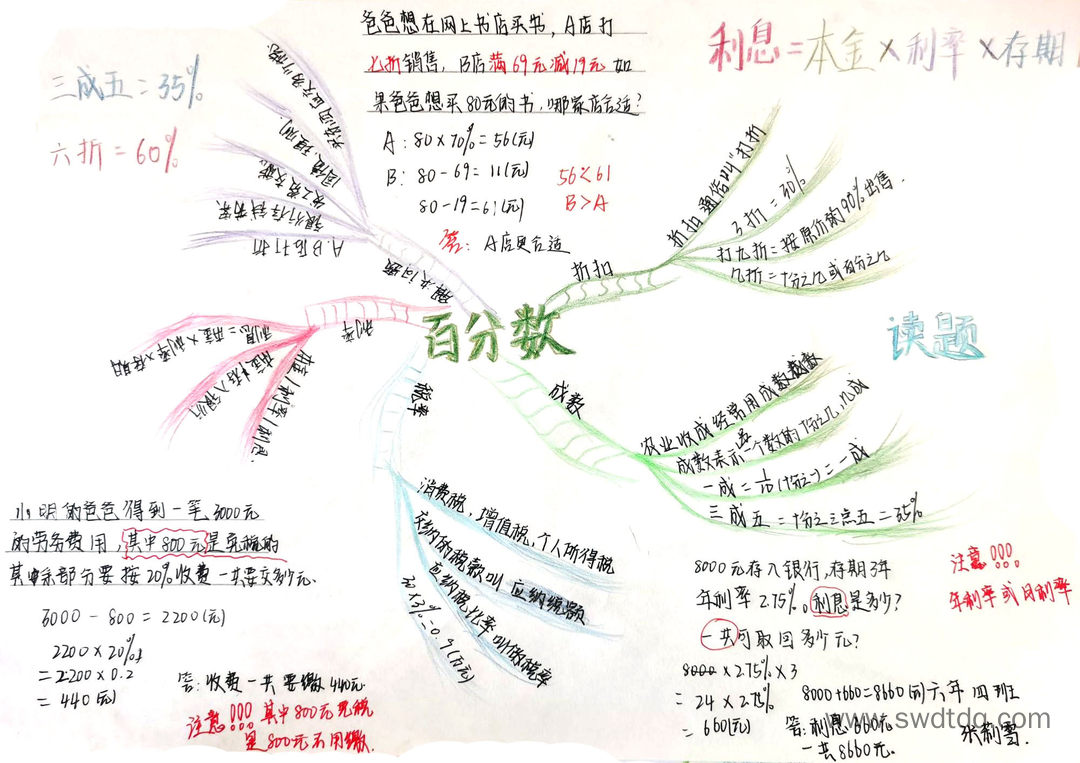 三成五=35%
六折=60%
爸爸想在网上书店买书,A店打
七折销售,B店满69元减19元 如
果爸爸想买80元的书,哪家店合适?
A:80×70%=56(元)
B:80-69=11(元)
80-19=61(元)
56<61
B>A
答:A店更合适
利息=本金×利率×存期
百分数
折扣
折扣 通俗叫"打折
3折=30%
打九折=按原价的90%出售.
几折=十分之几或百分之几
读题
成数
农业收成经常用成数
成数表示一个数的十分之几,几成
一成=1/10(十分之一)=一成
三成五=十分之三点五=35%
税率
消费税,增值税,个人所得税
应纳的税款叫 应纳税额
应纳税比率叫做税率
30×3%=0.9(万元)
利率
利息=本金×利率×存期
本金:存入银行
本金/利率/利息
解决问题
A.B店打折
银行存钱
小明的爸爸得到一笔3000元
的劳务费用,其中800元是免税的
其余部分要按20%收费一共要交多少元.
3000-800=2200(元)
2200×20%
=2200×0.2
=440(元)
答:收费一共要缴440元
注意!!!其中800元免税
是800元不用缴.
8000元存入银行,存期3年
年利率2.75%。利息是多少?
一共可取回多少元?
8000×2.75%×3
=24×2.75%
=660(元)
8000+660=8660(元)
答:利息660元
一共8660元.
注意!!!
年利率或月利率
六年四班
张利雪.
www.swdtdq.com